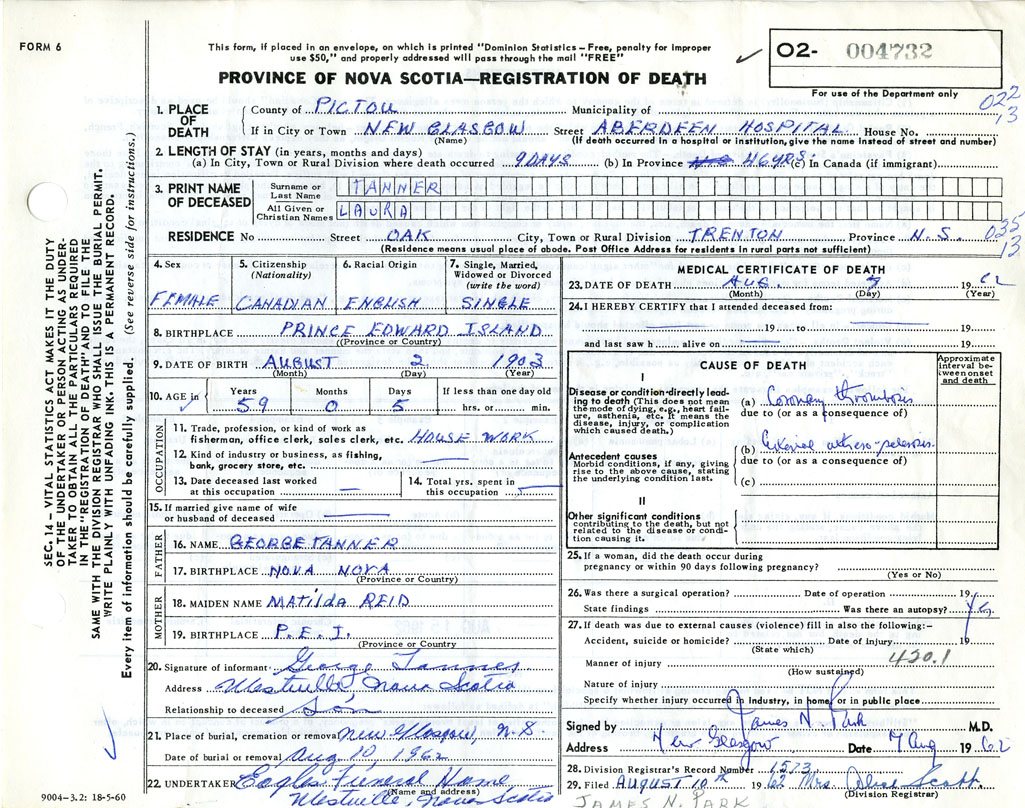 FORM 6
This form, if placed in an envelope, on which is printed "Dominion Statistics – Free, penalty for improper
use $50," and properly addressed will pass through the mail "FREE"
02- 004732
For use of the Department only
PROVINCE OF NOVA SCOTIA—REGISTRATION OF DEATH
022
13
1. PLACE OF DEATH
County of PICTOU Municipality of
If in City or Town NEW GLASGOW Street ABERDEEN HOSPITAL House No.
(Name) (If death occurred in a hospital or institution, give the name instead of street and number)
2. LENGTH OF STAY (in years, months and days)
(a) In City, Town or Rural Division where death occurred 9 DAYS (b) In Province 46 YRS. (c) In Canada (if immigrant)
3. PRINT NAME OF DECEASED
Surname or Last Name TANNER
All Given or Christian Names LAURA
RESIDENCE No Street OAK City, Town or Rural Division TRENTON Province N.S. 035
13
(Residence means usual place of abode. Post Office Address for residents in rural parts not sufficient)
4. Sex
FEMALE
5. Citizenship
(Nationality)
CANADIAN
6. Racial Origin
ENGLISH
7. Single, Married,
Widowed or Divorced
(write the word)
SINGLE
8. BIRTHPLACE PRINCE EDWARD ISLAND
(Province or Country)
9. DATE OF BIRTH AUGUST 2 1903
(Month) (Day) (Year)
10. AGE in
Years Months Days If less than one day old
59 0 5 hrs. or min.
OCCUPATION
11. Trade, profession, or kind of work as
fisherman, office clerk, sales clerk, etc. HOUSE WORK
12. Kind of industry or business, as fishing,
bank, grocery store, etc.
13. Date deceased last worked
at this occupation
14. Total yrs. spent in
this occupation
15. If married give name of wife
or husband of deceased
FATHER
16. NAME GEORGE TANNER
17. BIRTHPLACE NOVA NOVA
(Province or Country)
MOTHER
18. MAIDEN NAME MATILDA REID
19. BIRTHPLACE P.E.I.
(Province or Country)
20. Signature of informant George Tanner
Address Westville, Nova Scotia
Relationship to deceased Son
21. Place of burial, cremation or removal New Glasgow, N.S.
Date of burial or removal Aug 10, 1962
22. UNDERTAKER Eagles Funeral Home
(Name and address)
Westville, Nova Scotia
MEDICAL CERTIFICATE OF DEATH
23. DATE OF DEATH AUG. 7 19 62
(Month) (Day) (Year)
24. I HEREBY CERTIFY that I attended deceased from:
19 to 19
and last saw h alive on 19
CAUSE OF DEATH
Approximate interval between onset and death
I
Disease or condition directly leading to death (This does not mean
the mode of dying, e.g., heart failure, asthenia, etc. It means the
disease, injury, or complication
which caused death.)
(a) Coronary thrombosis
due to (or as a consequence of)
Antecedent causes
Morbid conditions, if any, giving
rise to the above cause, stating
the underlying condition last.
(b)
due to (or as a consequence of)
(c)
II
Other significant conditions
contributing to the death, but not
related to the disease or condition causing it.
25. If a woman, did the death occur during
pregnancy or within 90 days following pregnancy?
(Yes or No)
26. Was there a surgical operation? Date of operation 19
State findings Was there an autopsy? Yes
27. If death was due to external causes (violence) fill in also the following:–
Accident, suicide or homicide? Date of injury 19
(State which)
420.1
Manner of injury
(How sustained)
Nature of injury
Specify whether injury occurred in industry, in home, or in public place
Signed by James N. Park M.D.
Address New Glasgow Date 7 Aug 1962
28. Division Registrar's Record Number 1573
29. Filed AUGUST 10th 1962 Mrs. Scott
(Division Registrar)
JAMES N. PARK
SEC. 14 – VITAL STATISTICS ACT MAKES IT THE DUTY
OF THE UNDERTAKER OR PERSON ACTING AS UNDER-
TAKER TO OBTAIN ALL THE PARTICULARS REQUIRED
IN THE "REGISTRATION OF DEATH" AND TO FILE THE
SAME WITH THE DIVISION REGISTRAR WHO SHALL ISSUE THE BURIAL PERMIT.
WRITE PLAINLY WITH UNFADING INK. THIS IS A PERMANENT RECORD.
Every item of information should be carefully supplied. (See reverse side for instructions.)
9004-3.2: 18-5-60